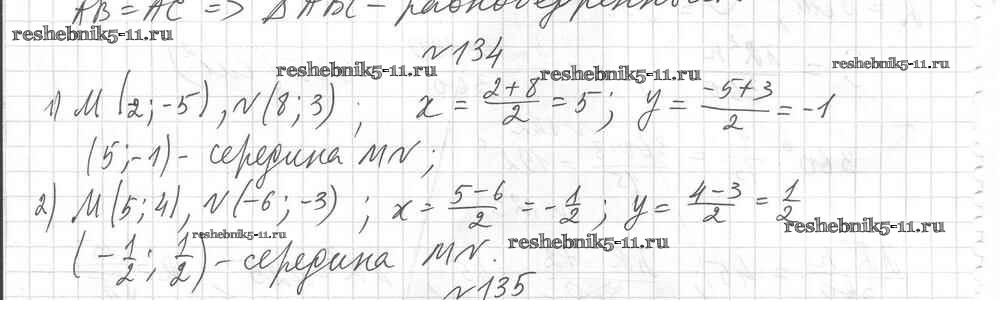 AB = AC => Δ ABC - равнобедренный.
reshebnik5-11.ru
№134
reshebnik5-11.ru reshebnik5-11.ru reshebnik5-11.ru
1) M(2; -5), N(8; 3); x = (2+8)/2 = 5; y = (-5+3)/2 = -1
(5; -1) - середина MN;
2) M(5; 4), N(-6; -3); x = (5-6)/2 = -1/2; y = (4-3)/2 = 1/2
reshebnik5-11.ru reshebnik5-11.ru reshebnik5-11.ru
(-1/2; 1/2) - середина MN.
№135